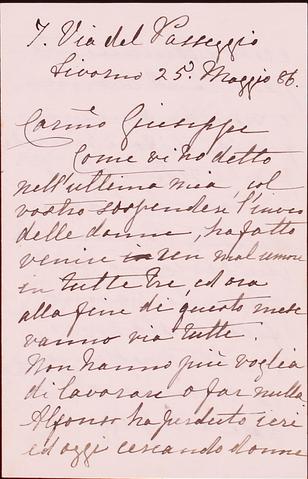 7. Via del Passeggio
Livorno 25. Maggio 86.
Carmo Giuseppe
Come vi ho detto
nell'ultima mia, col
vostro sospendere l'invio
delle donne, ha fatto
venire in un mal umore
in tutte tre, ed ora
alla fine di questo mese
vanno via tutte.
Non hanno più voglia
di lavorare o far nulla
Alfonso ha perduto ieri
ed oggi cercando donne